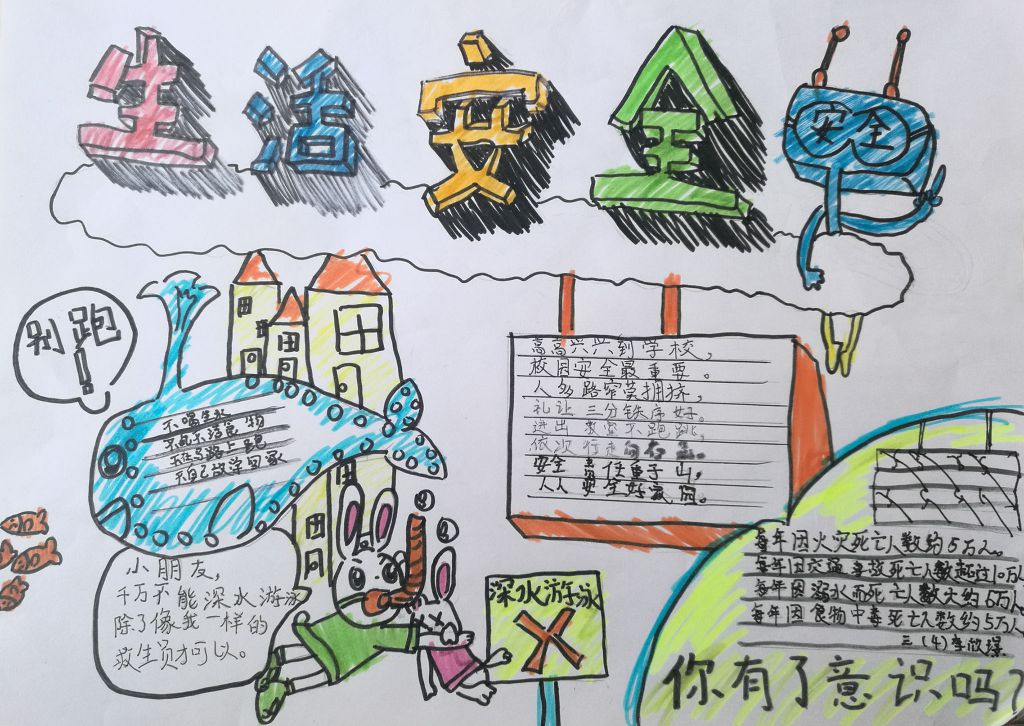 生活安全
安全
别跑!
不喝生水
不吃不洁食物
不在马路上跑
不自己放学回家
高高兴兴到学校,
校园安全最重要。
人多路窄莫拥挤,
礼让三分秩序好。
进出教室不跑跳,
依次行走
安全责任重于山,
人人安全好家园。
小朋友,
千万不能深水游泳
除了像我一样的
救生员才可以。
深水游泳
每年因火灾死亡人数约5万人。
每年因交通事故死亡人数超过10万人
每年因溺水而死亡人数大约6万人
每年因食物中毒死亡人数约5万人
三(4)李欣
你有了意识吗?